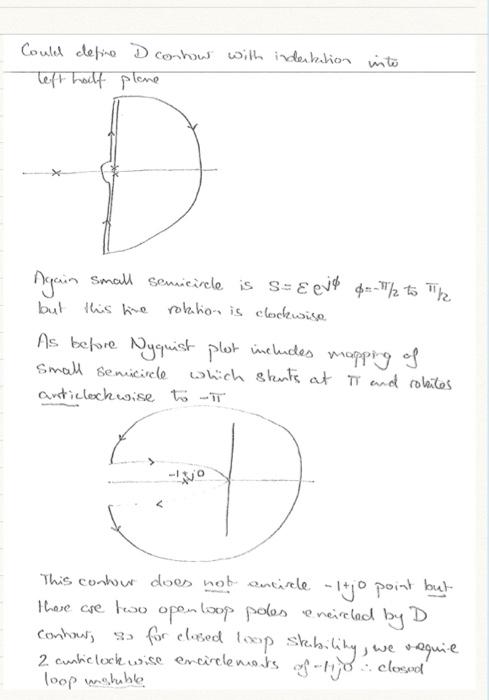 Could define D contour with indentation into
left half plane
Again small semicircle is s=εe^jφ φ=-π/2 to π/2
but this time rotation is clockwise
As before Nyquist plot includes mapping of
small semicircle which starts at π and rotates
anticlockwise to -π
-1+j0
This contour does not encircle -1+j0 point but
there are two open loop poles encircled by D
contour, so for closed loop stability, we require
2 anticlockwise encirclements of -1+j0 ∴ closed
loop unstable